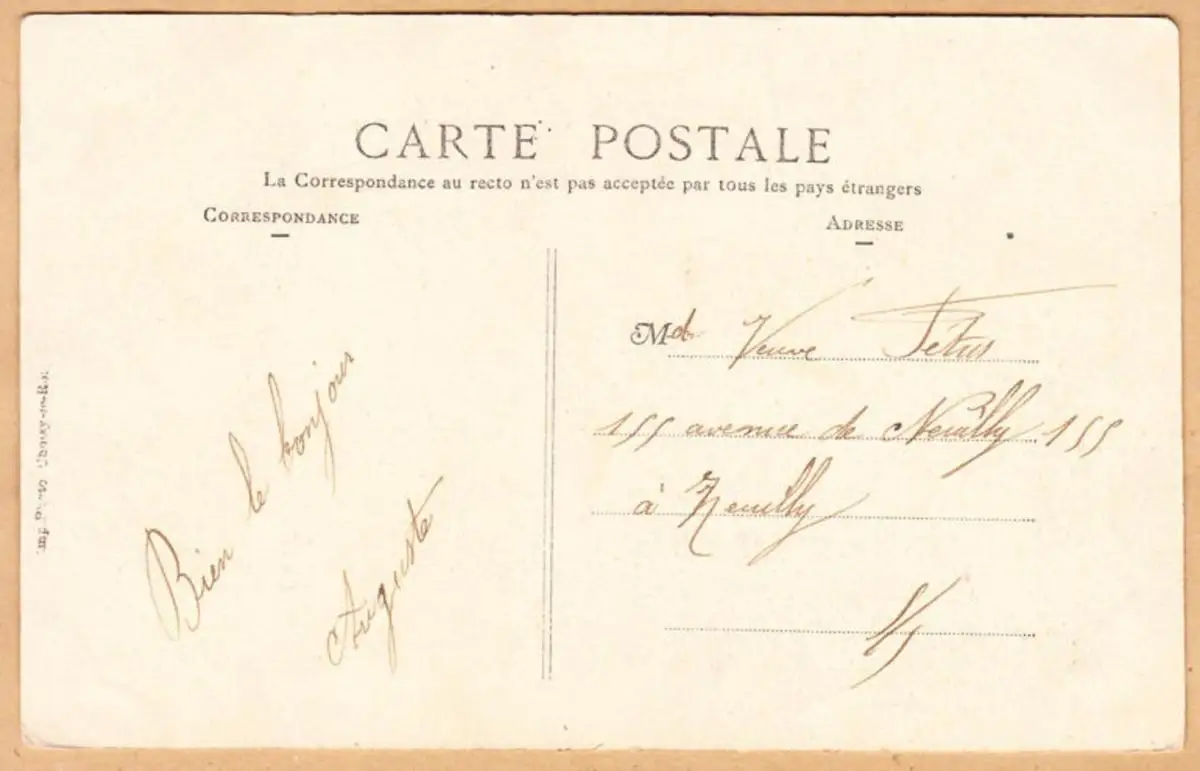 CARTE POSTALE
La Correspondance au recto n'est pas acceptée par tous les pays étrangers
CORRESPONDANCE
ADRESSE
Bien le bonjour
Auguste
Md Veuve Petus
155 avenue de Neuilly 155
à Neuilly